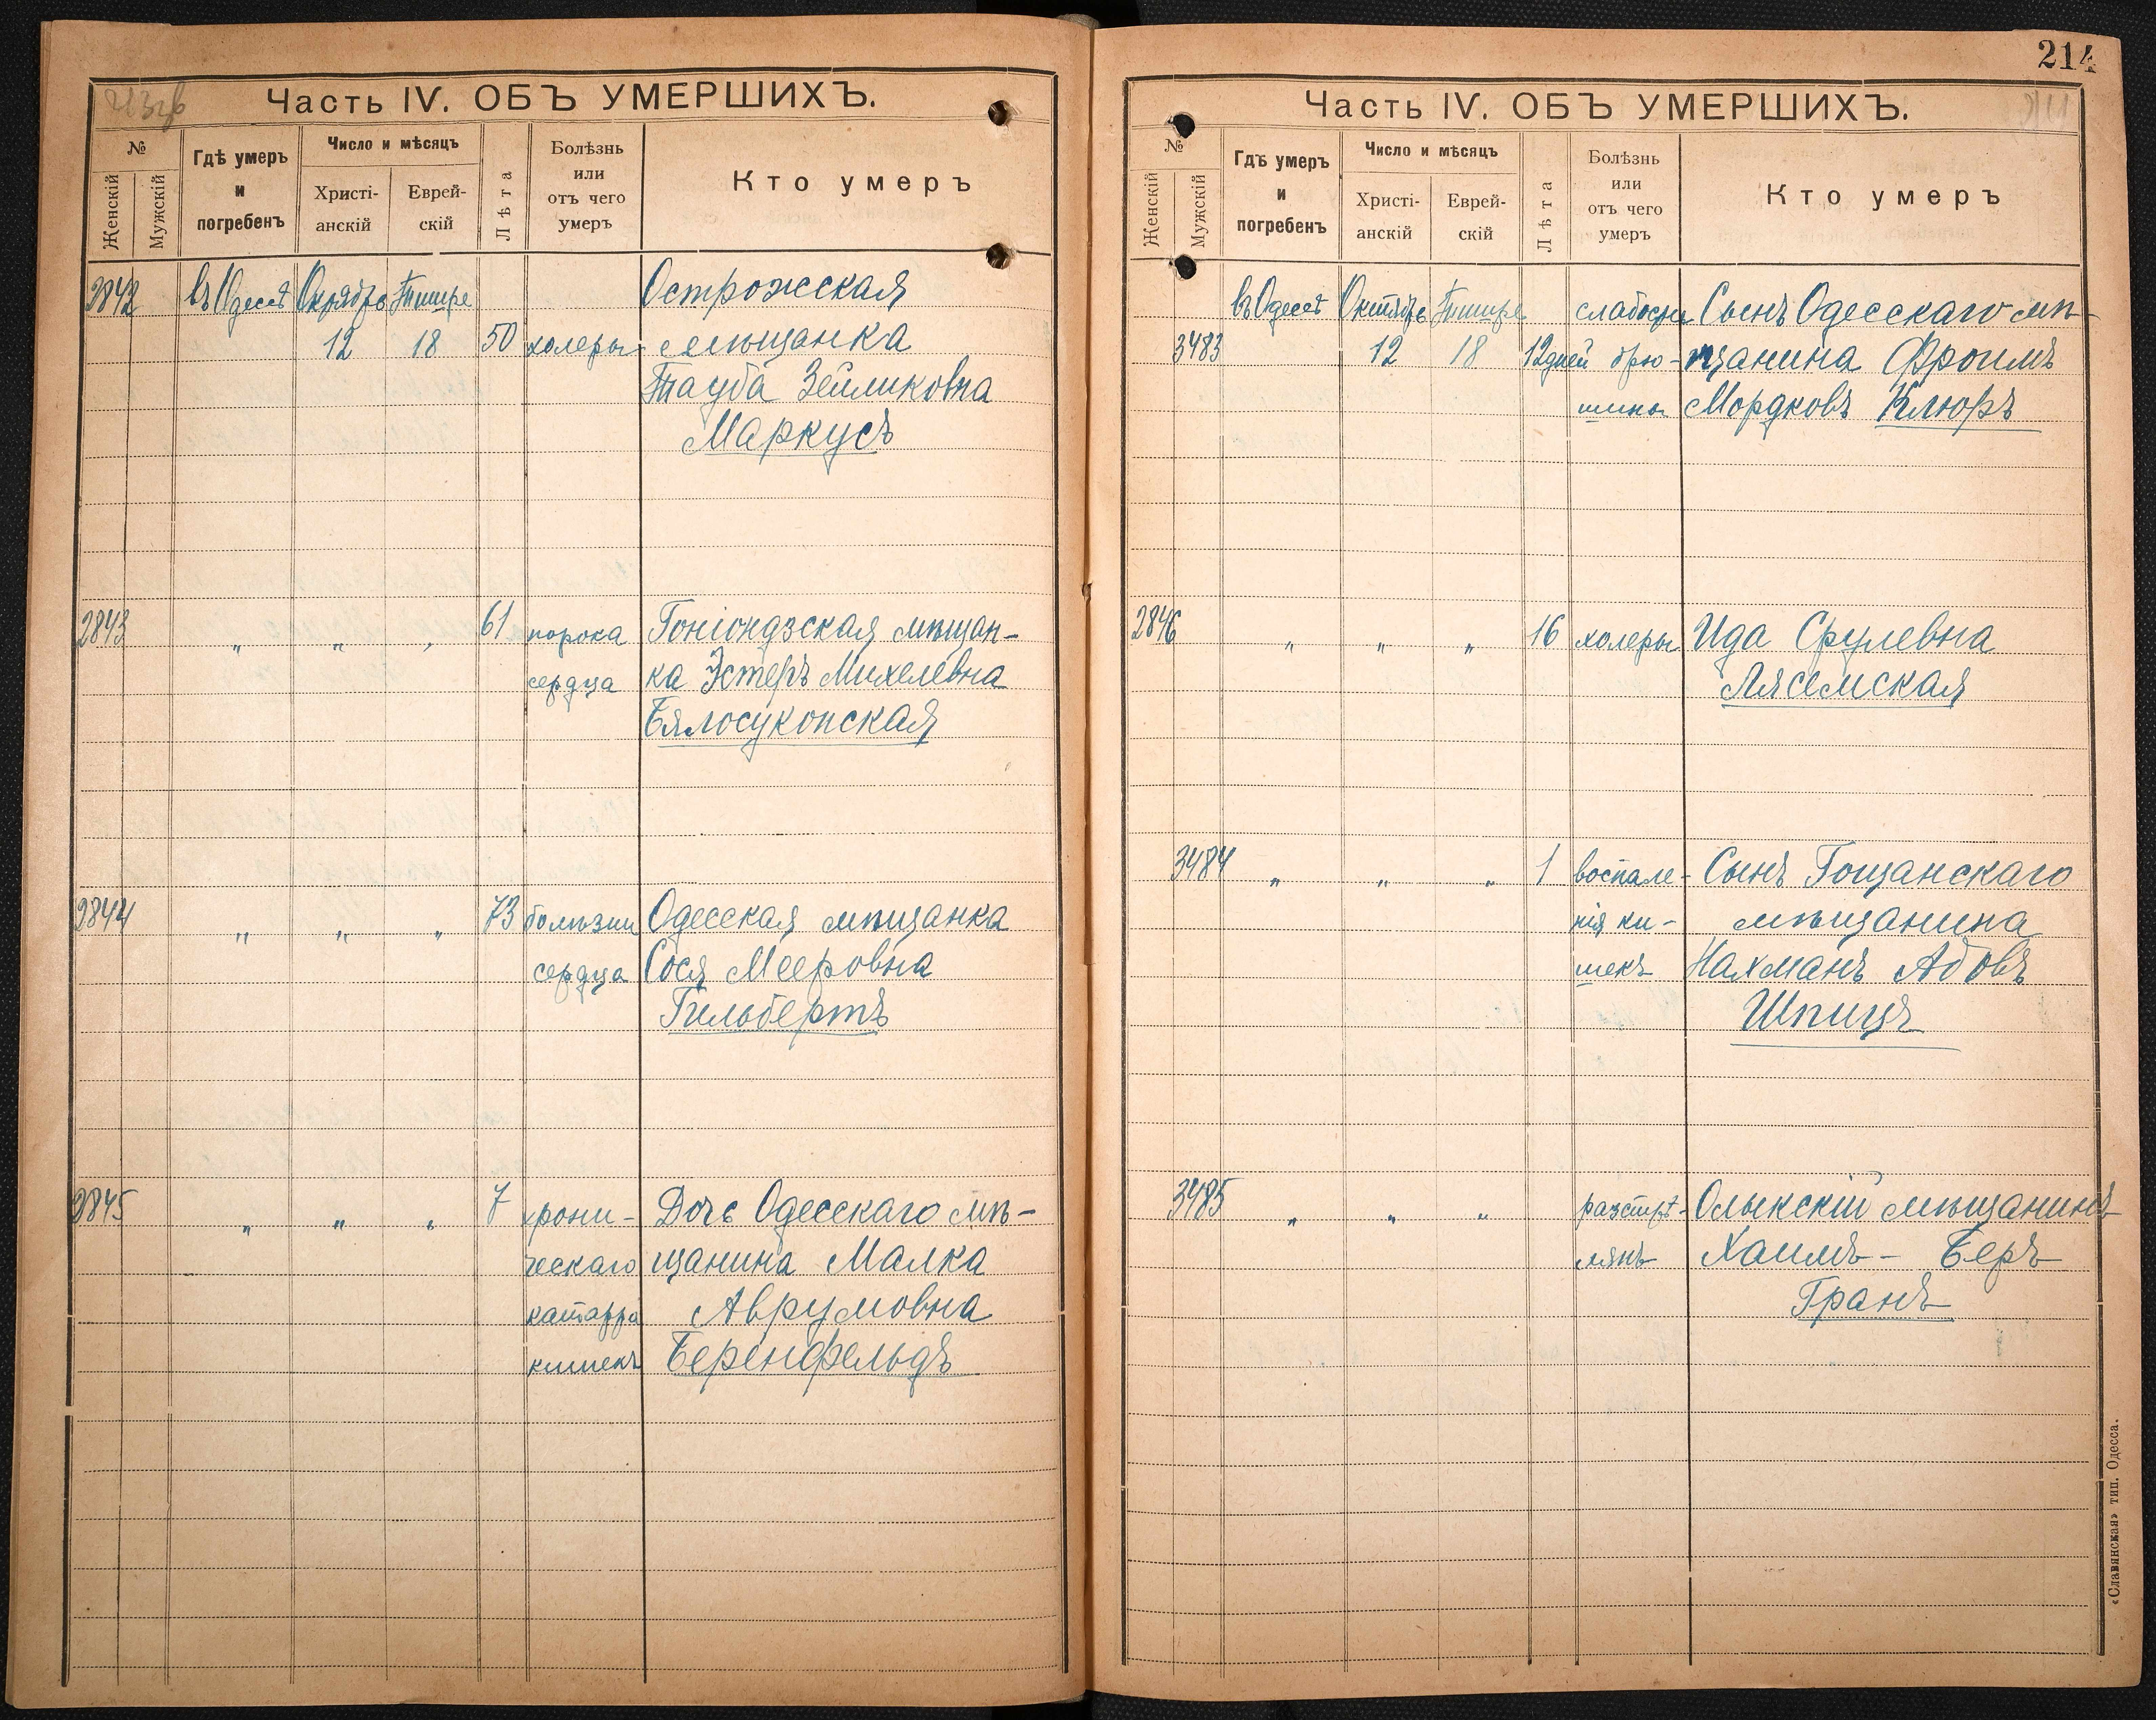 Часть IV. ОБЪ УМЕРШИХЪ.
№
Женскій
Мужскій
Гдѣ умеръ и погребенъ
Число и мѣсяцъ
Христіанскій
Еврейскій
Лѣта
Болѣзнь или отъ чего умеръ
Кто умеръ
2842 въ Одессѣ Октябрь Тишре Острожская
12 18 50 холеры мѣщанка
Тауба Зейликовна
Маркусъ
2843 „ „ „ 61 порока Гоніондзская мѣщан-
сердца ка Эстеръ Михелевна
Бялосуконская
2844 „ „ „ 73 болѣзни Одесская мѣщанка
сердца Сося Мееровна
Гильбертъ
2845 „ „ „ 7 хрони- Дочь Одесскаго мѣ-
ческаго щанина Малка
катарра Аврумовна
кишекъ Беренфельдъ
214
Часть IV. ОБЪ УМЕРШИХЪ.
№
Женскій
Мужскій
Гдѣ умеръ и погребенъ
Число и мѣсяцъ
Христі-
анскій
Еврей-
скій
Лѣта
Болѣзнь или отъ чего умеръ
Кто умеръ
въ Одессѣ Октябрь Тишре слабости Сынъ Одесскаго мѣ-
3483 12 18 12 дней брю- щанина Фроимъ
шины Мордковъ Клюръ
2846 „ „ „ 16 холеры Ида Срулевна
Лясемская
3484 „ „ „ 1 воспале- Сынъ Гощанскаго
нія ки- мѣщанина
шекъ Нахманъ Абовъ
Шпицъ
3485 „ „ „ разстрѣ- Олыкскій мѣщанинъ
лянъ Хаимъ - Беръ
Гранъ
«Славянская» тип. Одесса.